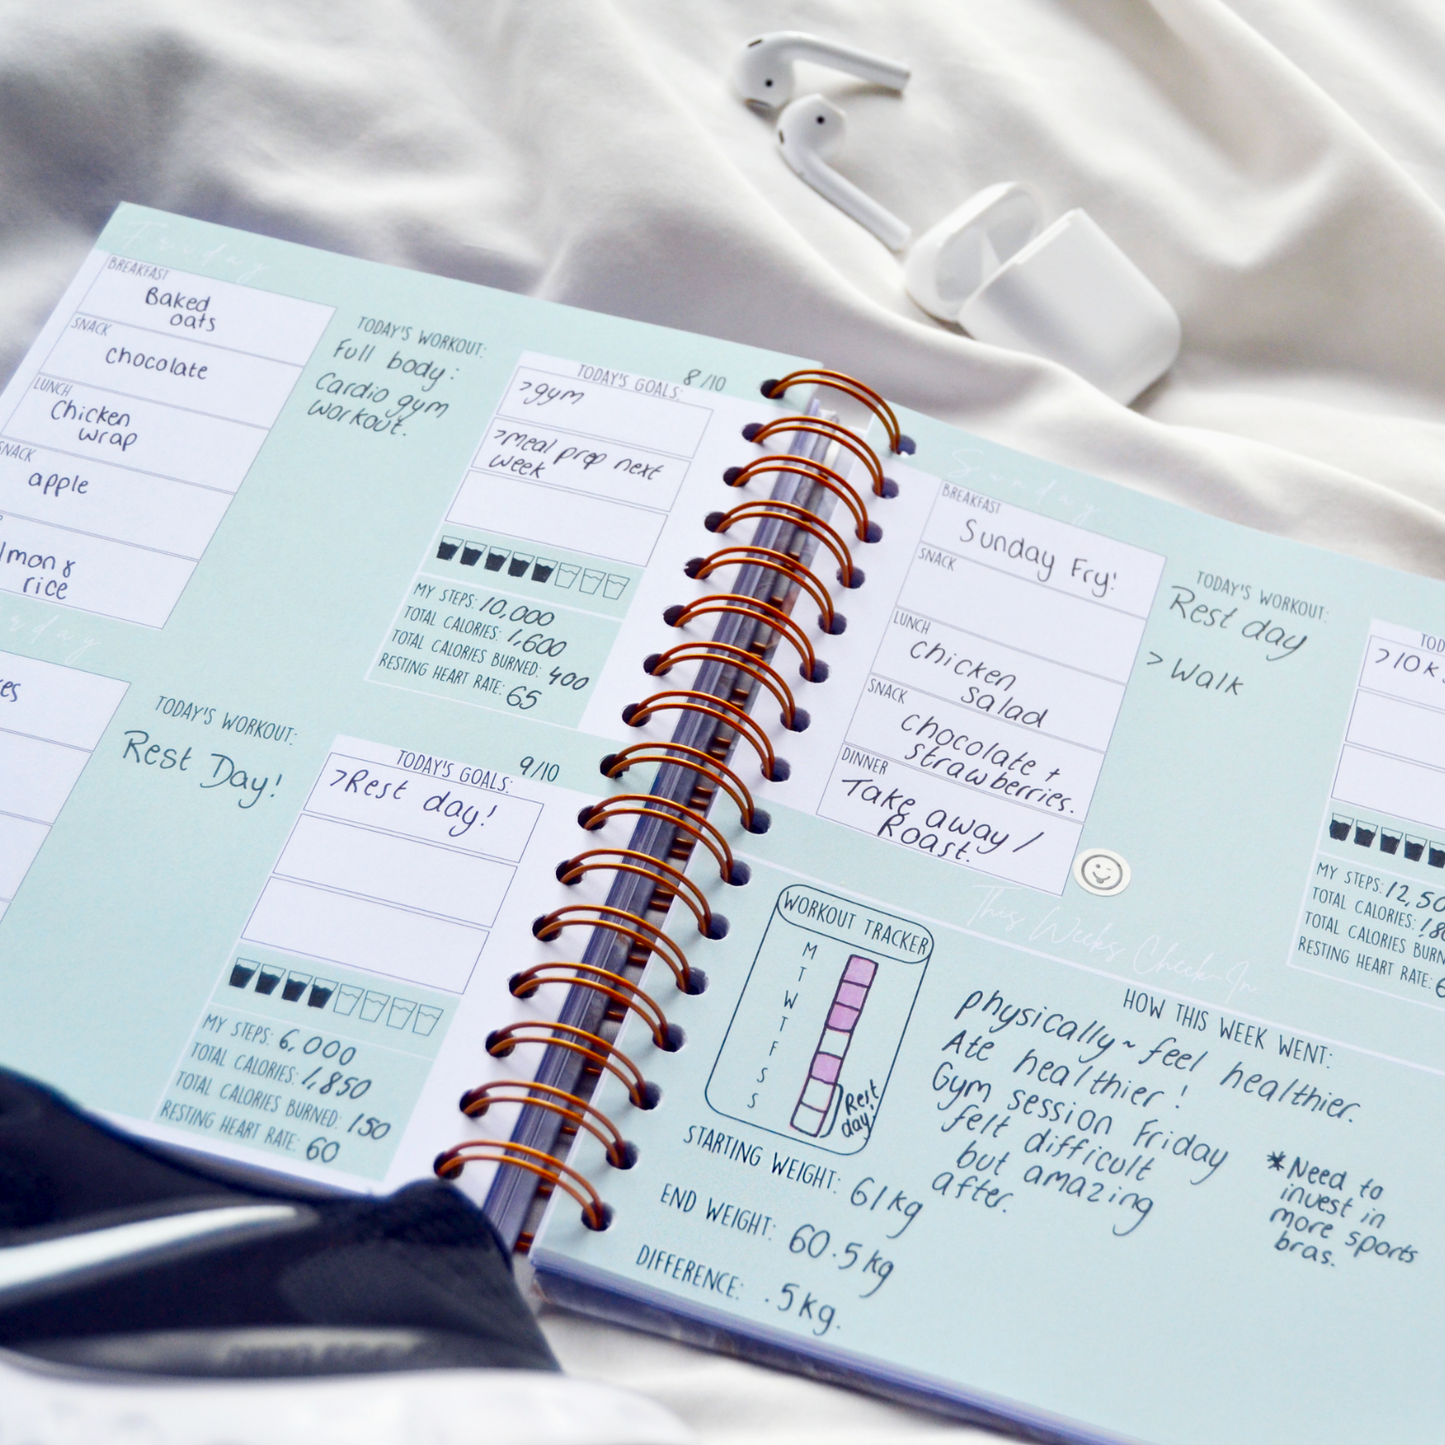 Friday
BREAKFAST
Baked
oats
SNACK
chocolate
LUNCH
Chicken
wrap
SNACK
apple
rice
TODAY'S WORKOUT:
Full body:
Cardio gym
workout.
8/10
TODAY'S GOALS:
>gym
>meal prep next
week
MY STEPS: 10,000
TOTAL CALORIES: 1,600
TOTAL CALORIES BURNED: 400
RESTING HEART RATE: 65
TODAY'S WORKOUT:
Rest Day!
9/10
TODAY'S GOALS:
>Rest day!
MY STEPS: 6,000
TOTAL CALORIES: 1,850
TOTAL CALORIES BURNED: 150
RESTING HEART RATE: 60
Sunday
BREAKFAST
Sunday Fry!
SNACK
LUNCH
chicken
salad
SNACK
chocolate +
strawberries.
DINNER
Take away /
Roast.
TODAY'S WORKOUT:
Rest day
> Walk
>10k
MY STEPS: 12,50
TOTAL CALORIES:
TOTAL CALORIES
RESTING HEART RATE:
This Weeks Check-In
WORKOUT TRACKER
M
T
W
T
F
S
S
Rest
day!
STARTING WEIGHT: 61kg
END WEIGHT: 60.5kg
DIFFERENCE: .5kg.
HOW THIS WEEK WENT:
physically~ feel healthier.
Ate healthier!
Gym session Friday
felt difficult
but amazing
after.
*Need to
invest in
more sports
bras.